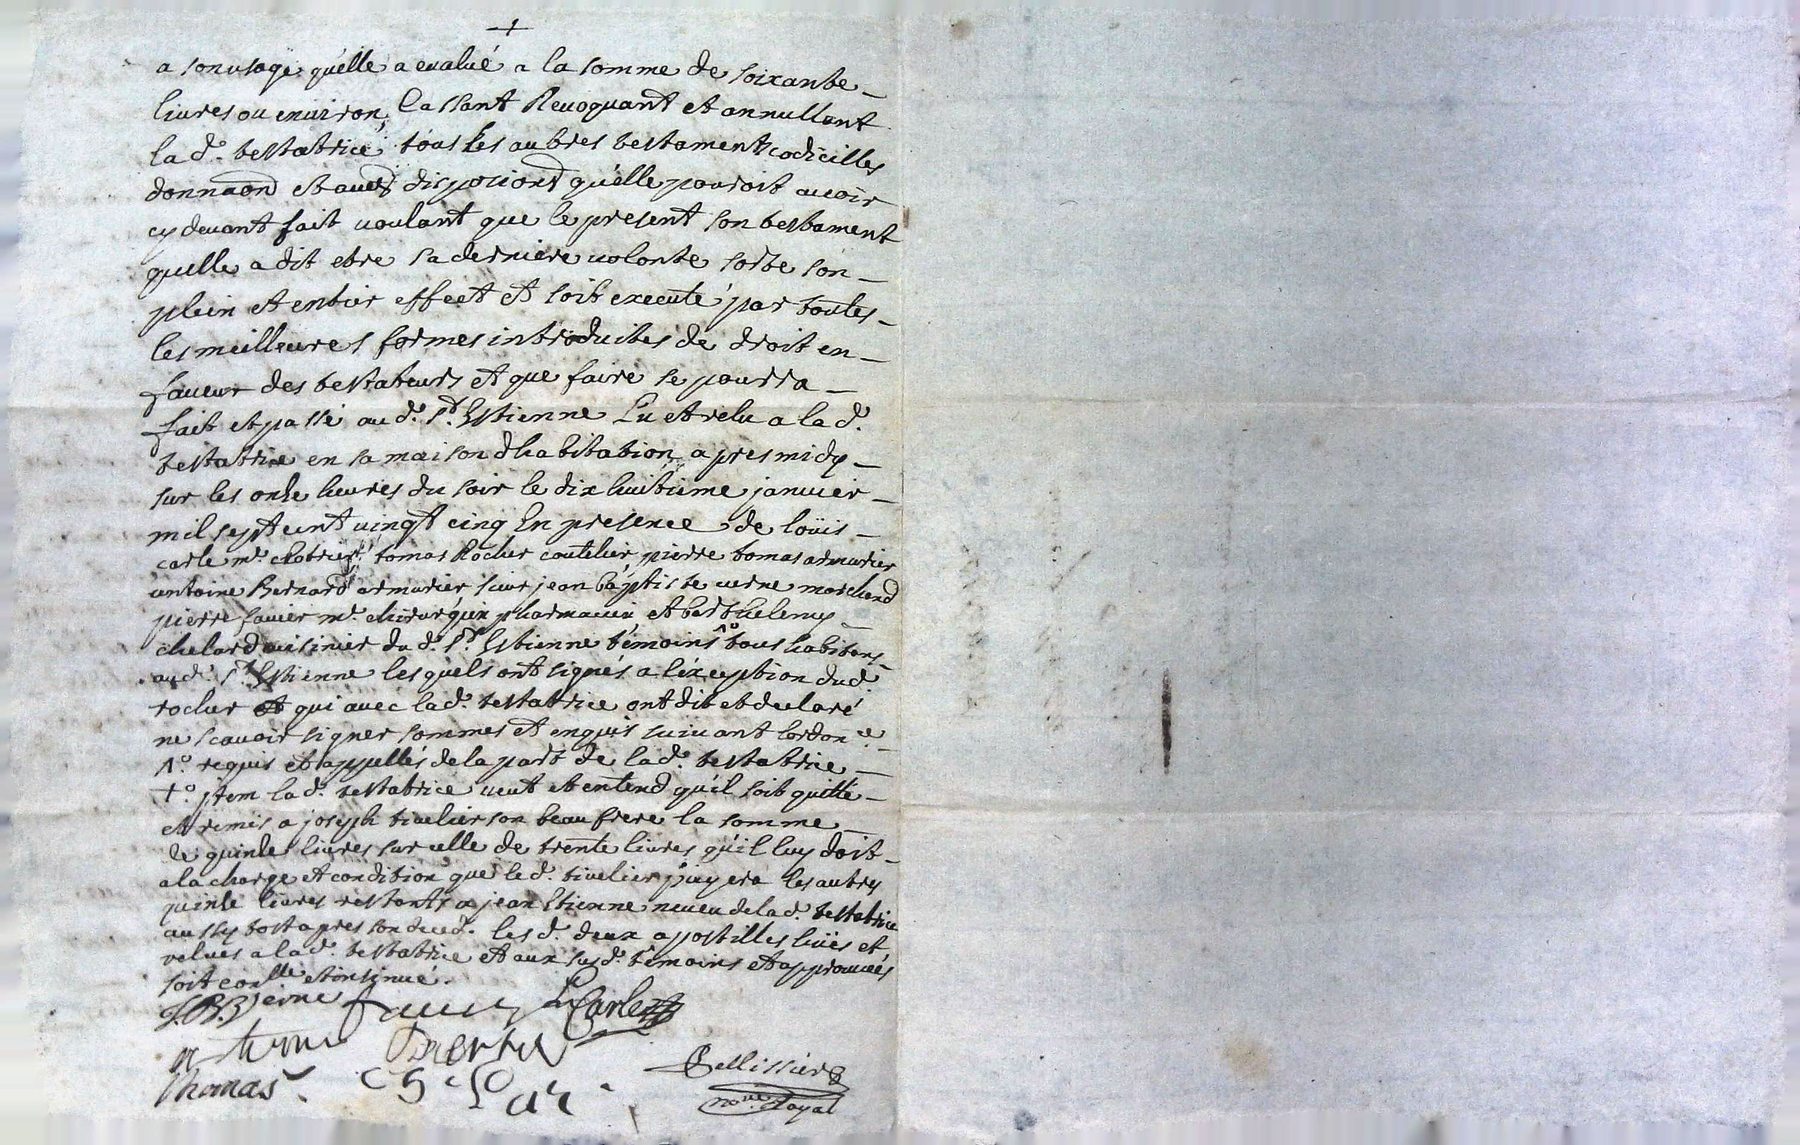 a son usage quelle a evalué a la somme de soixante
livres ou environ, Cassant Revoquant et annullant
lad.e testatrice tous les autres testaments codicilles
donnaons et autres disposions quelle pouroit avoir
cy devant fait voulant que le present son testament
quelle a dit etre sa derniere volonte sorte son
plein et entier effect et soit executé par toutes
les meilleures formes introduites de droit en
faveur des testateurs et que faire se pourra
fait et passé aud.t S.t Estienne Lu et relu a lad.e
testatrice en sa maison dhabitation apres midy
sur les onze heures du soir le dix huitieme janvier
mil sept cent vingt cinq En presence de Loüis
carle m.e tomas Rocher coutelier, pierre tomas armurier
antoine Bernard armurier sieur jean baptiste verne marchand
pierre favier m.e chirurgien pharmacien, et barthelemy
chelard cuisinier dud.t S.t Estienne témoins 1.o tous habitans
aud.t S.t Estienne lesquels ont signés a lexception dud.t
rocher et qui avec lad.e testatrice ont dit et declaré
ne scavoir signer sommés et enquis suivant lordon.ce
1.o requis et appellés de la part de lad.e testatrice
+.o jtem lad.e testatrice veut et entend quil soit quitté
et remis a joseph tivelier son beau frere la somme
de quinze livres sur celle de trente livres quil luy doit
a la charge et condition que led.t tivelier payera les autres
quinze livres restants a jean Etienne neveu de lad.e testatrice
aussy tost apres son deced. les d.t deux apostilles lües et
relues a lad.e testatrice et aux susd.t témoins et approuvés
soit con.lle et insinué.
J.B. Verne Favier L Carle
Thomas Chelar
Pellissier
no.re Royal